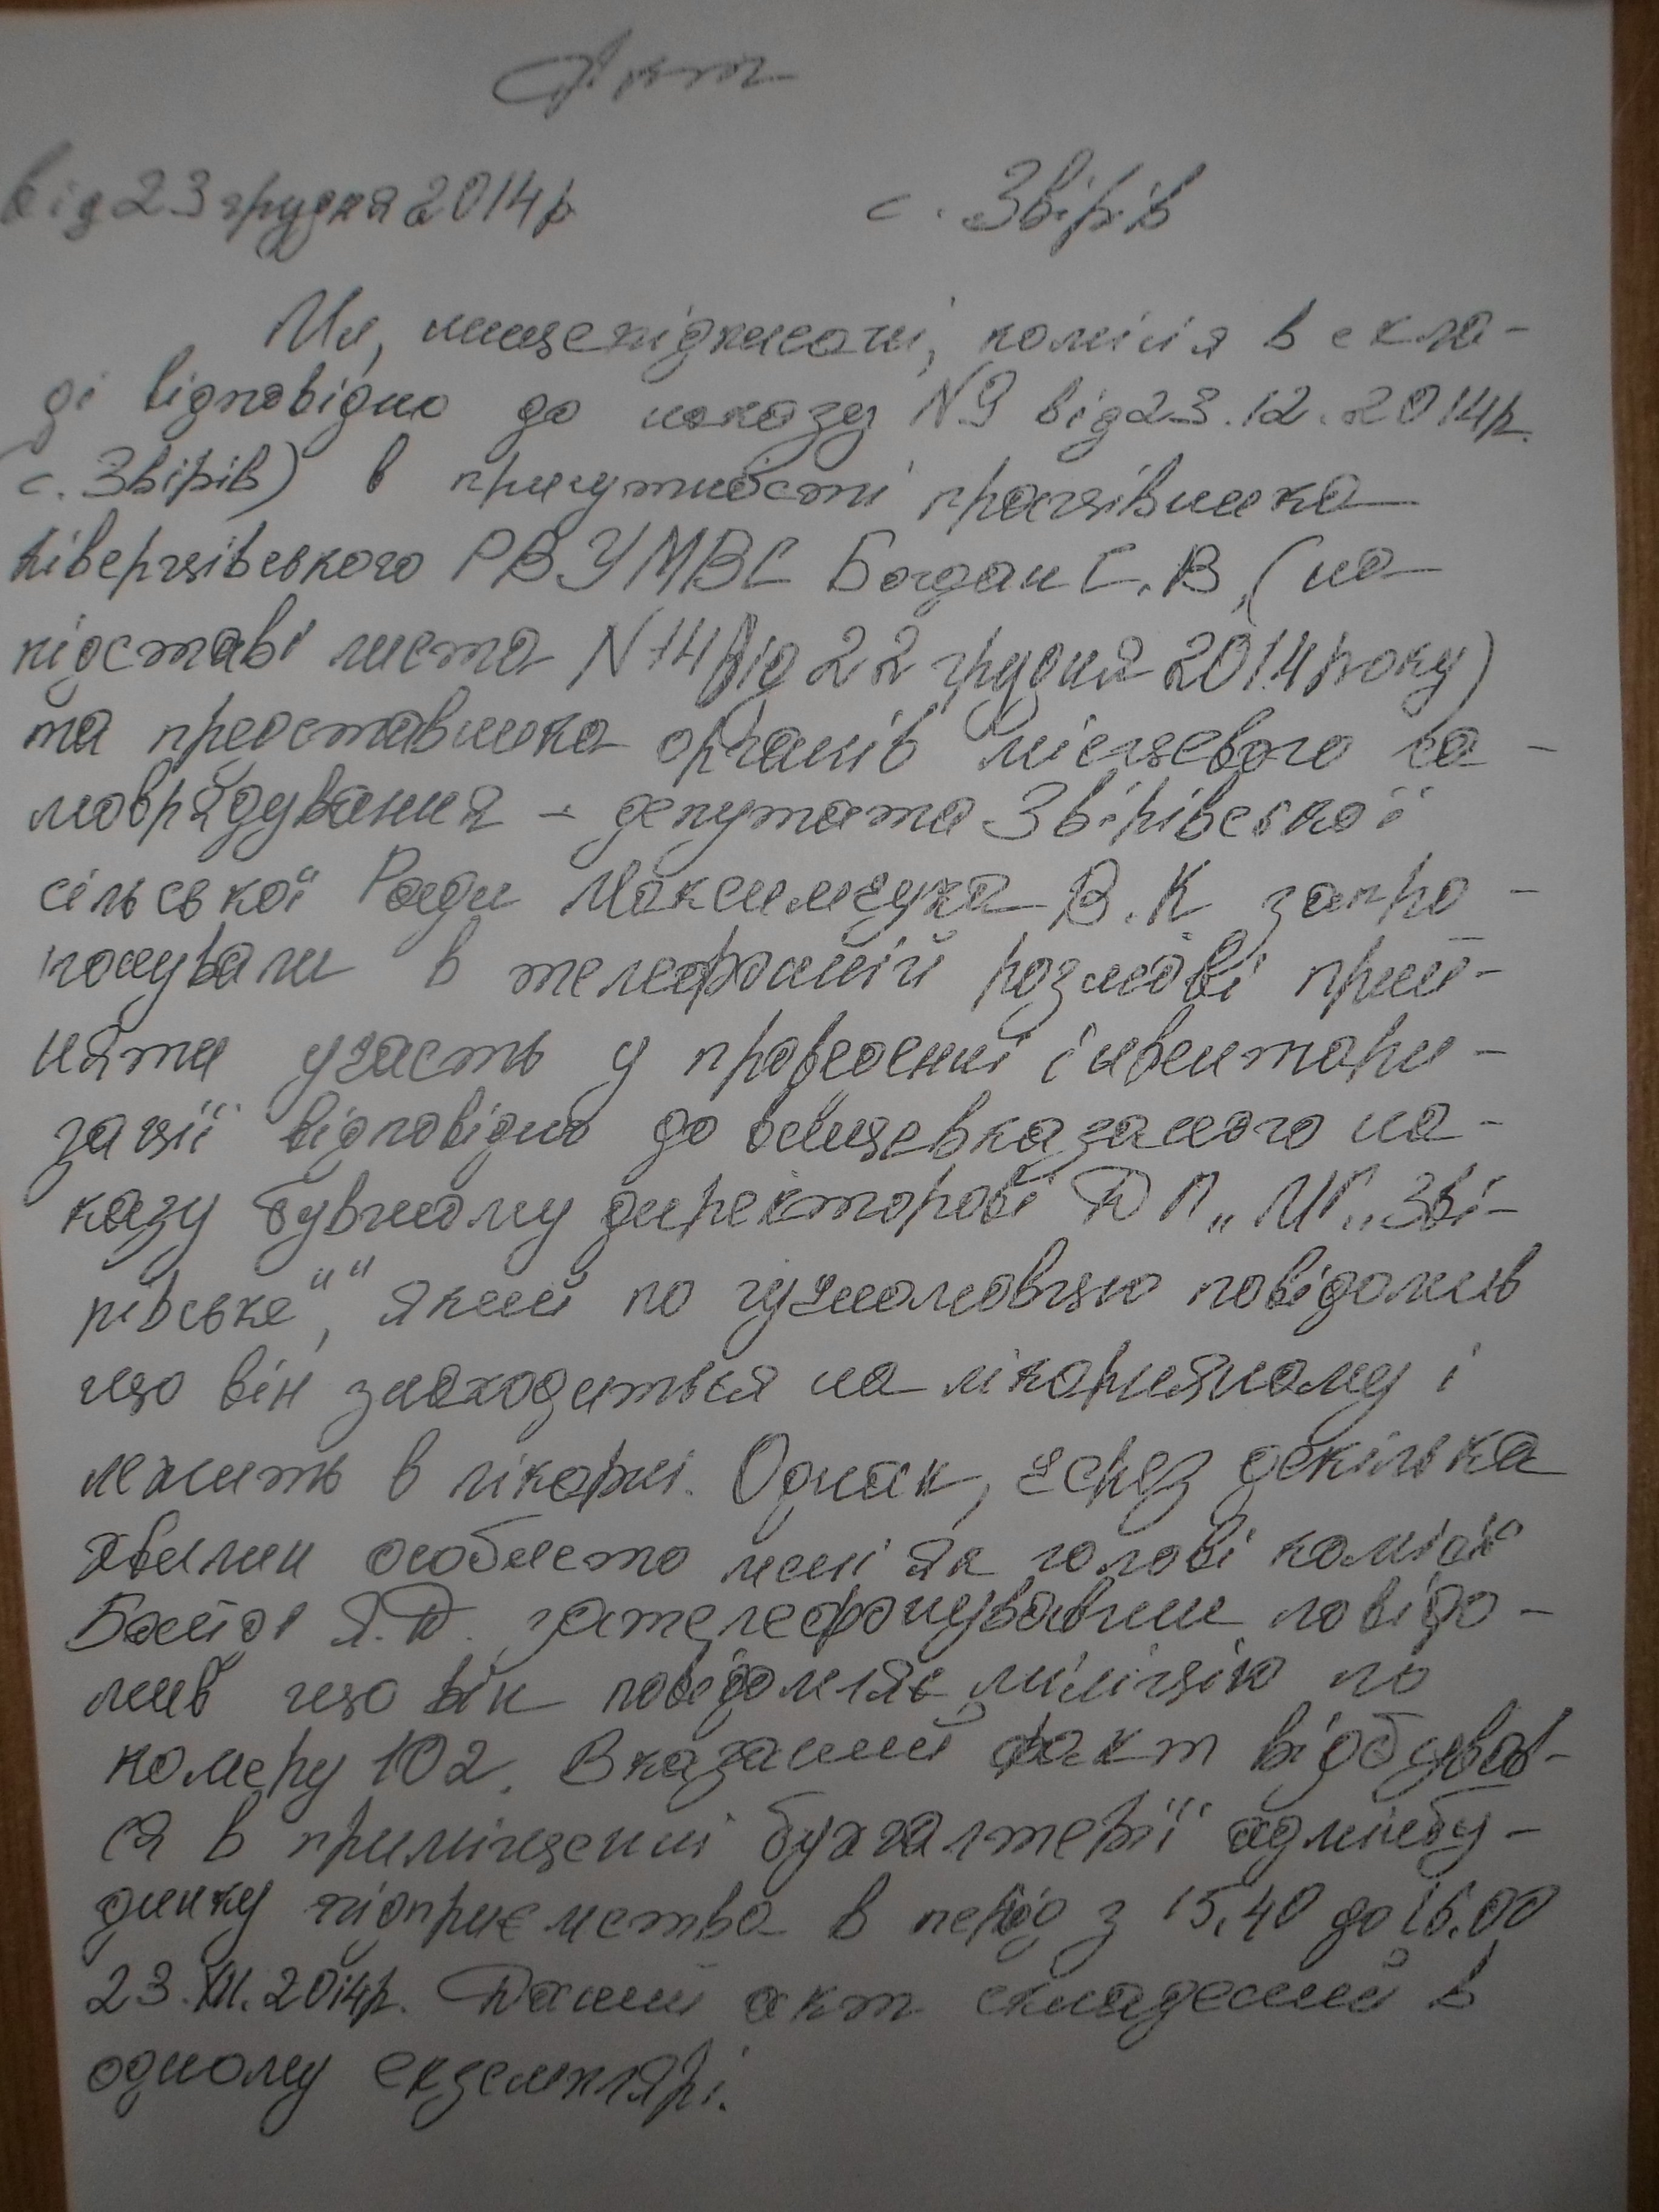 Акт
від 23 грудня 2014р
с. Звірів
Ми, нищепідписані, комісія в скла-
ді відповідно до наказу №9 від 23.12.2014р.
с. Звірів) в присутності працівника
Ківерцівського РВУМВС Богдан С.В. (на
підставі листа №14 від 22 грудня 2014 року)
та представника органів місцевого са-
моврядування - депутата Звірівської
сільської Ради Максимчука В.К запро-
понували в телефонній розмові прий-
няти участь у проведенні інвентари-
зації відповідно до вищевказаного на-
казу бувшому директорові ДП „МГ„Зві-
рівське"", який по гучномовцю повідомив
що він знаходиться на лікарняному і
лежить в лікарні. Однак, через декілька
хвилин особисто мені як голові комісії
Я.Д. зателефонувавши повідо-
мив що він повідомляє міліцію по
номеру 102. Вказаний факт відбував-
ся в приміщенні бухгалтерії адмінбу-
динку підприємства в період з 15.40 до 16.00
23.XII.2014р. Даний акт складений в
одному екземплярі.